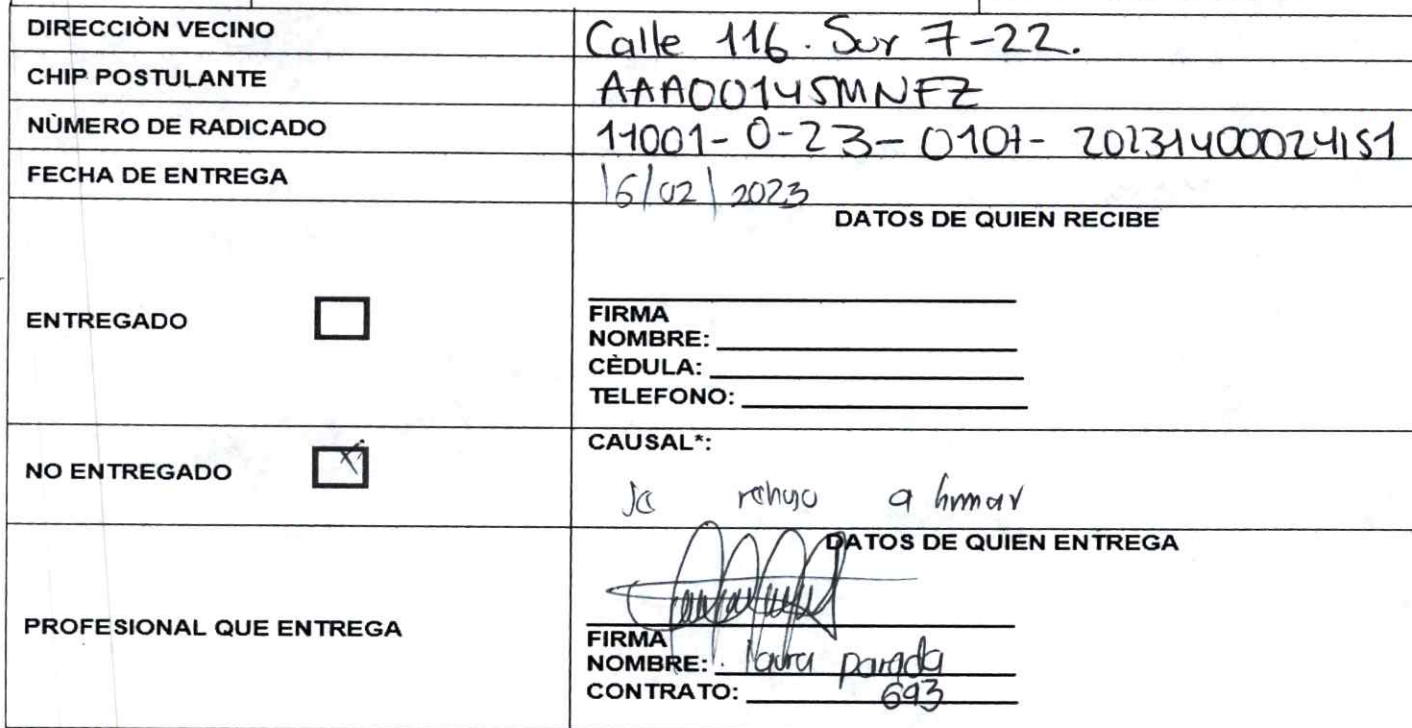 DIRECCIÒN VECINO Calle 116. Sur 7-22.
CHIP POSTULANTE AAA00145MNFZ
NÙMERO DE RADICADO 11001-0-23-0107-20231400024151
FECHA DE ENTREGA 16/02/2023
DATOS DE QUIEN RECIBE
ENTREGADO
FIRMA
NOMBRE:
CÈDULA:
TELEFONO:
CAUSAL*:
NO ENTREGADO X
se rehuso a firmar
DATOS DE QUIEN ENTREGA
PROFESIONAL QUE ENTREGA
FIRMA
NOMBRE: laura parada
CONTRATO: 693